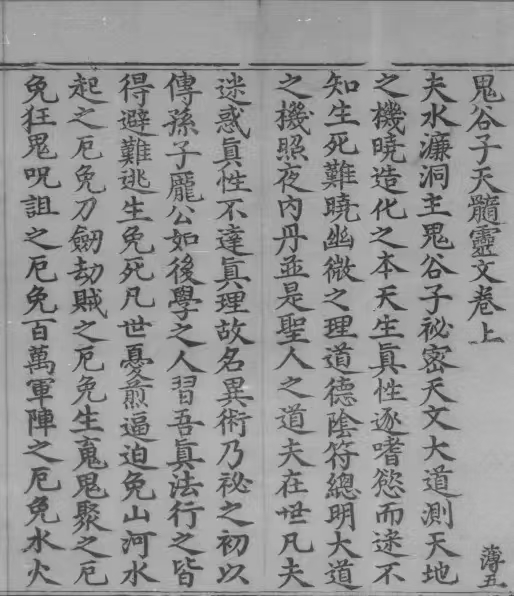 鬼谷子天髓靈文卷上
薄五
夫水濂洞主鬼谷子祕密天文大道測天地
之機曉造化之本天生眞性逐嗜慾而迷不
知生死難曉幽微之理道德陰符總明大道
之機照夜內丹並是聖人之道夫在世凡夫
迷惑眞性不達眞理故名異術乃祕之初以
傳孫子龐公如後學之人習吾眞法行之皆
得避難逃生免死凡世憂煎逼迫免山河水
起之厄免刀劒劫賊之厄免生䰟鬼聚之厄
免狂鬼呪詛之厄免百萬軍陣之厄免水火